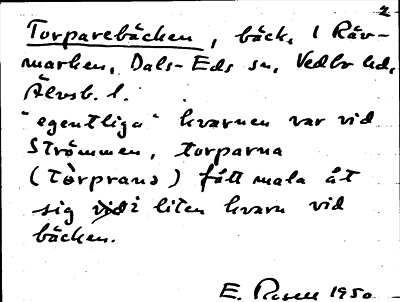 2
Torparebäcken, bäck, i Räv-
marken, Dals-Eds sn, Vedbo hd,
Älvsb. l.
"egentliga" kvarnen var vid
Strömmen, torparna
(Tòrprans) fått mala åt
sig i liten kvarn vid
bäcken.
E. 1950